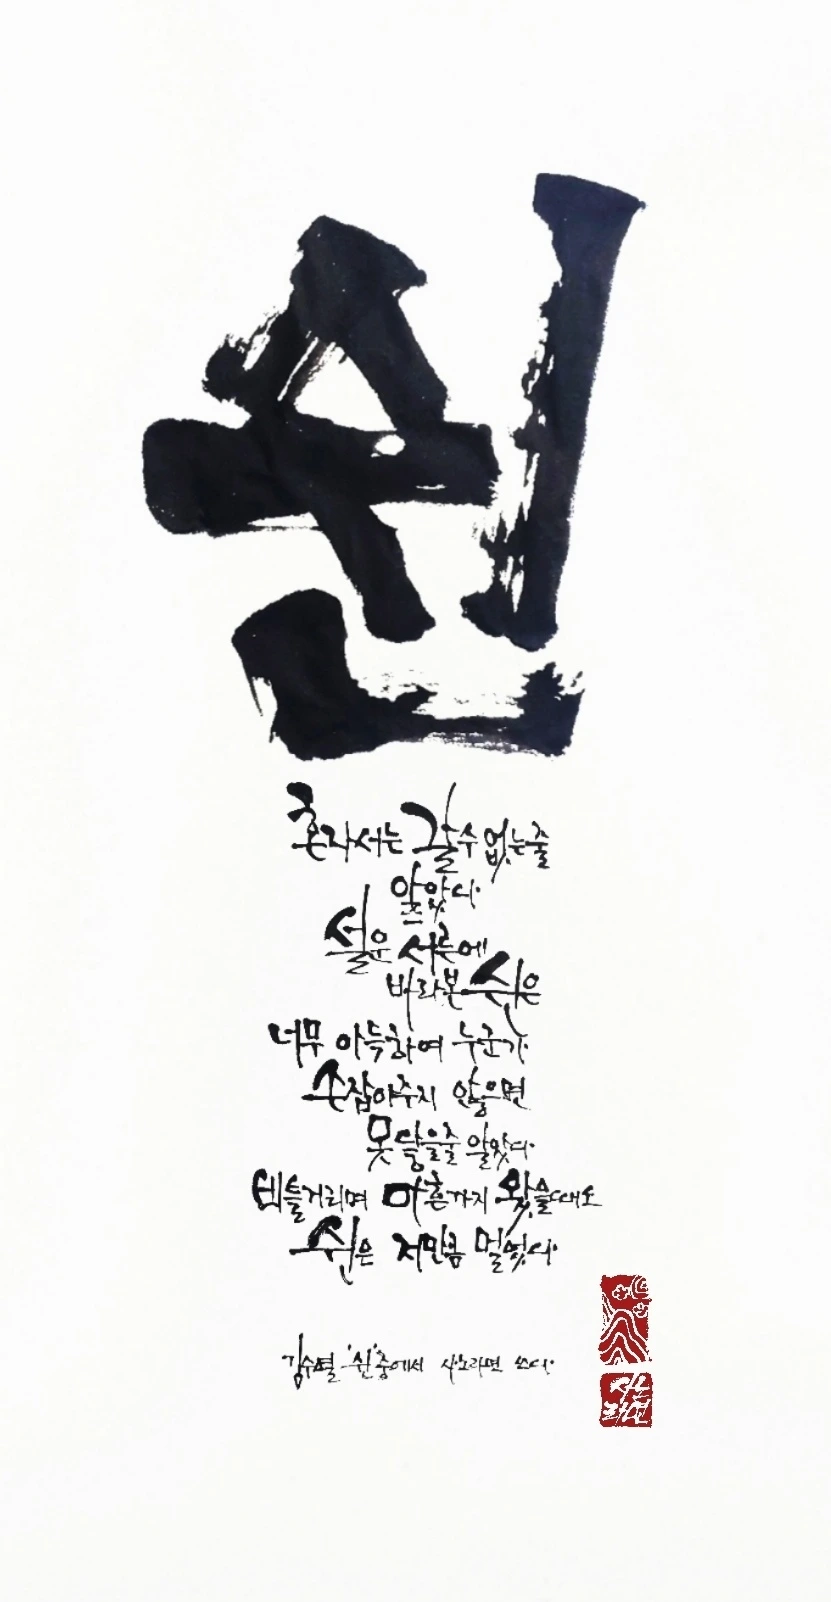 쉰
혼자서는 갈 수 없는 줄
알았다.
설운 서른에
바라본 쉰은
너무 아득하여 누군가
손잡아주지 않으면
못 닿을 줄 알았다.
비틀거리며 마흔까지 왔을 때도
쉰은 저만큼 멀었다.
김수열 '쉰' 중에서 사노라면 쓰다.
사노
라면